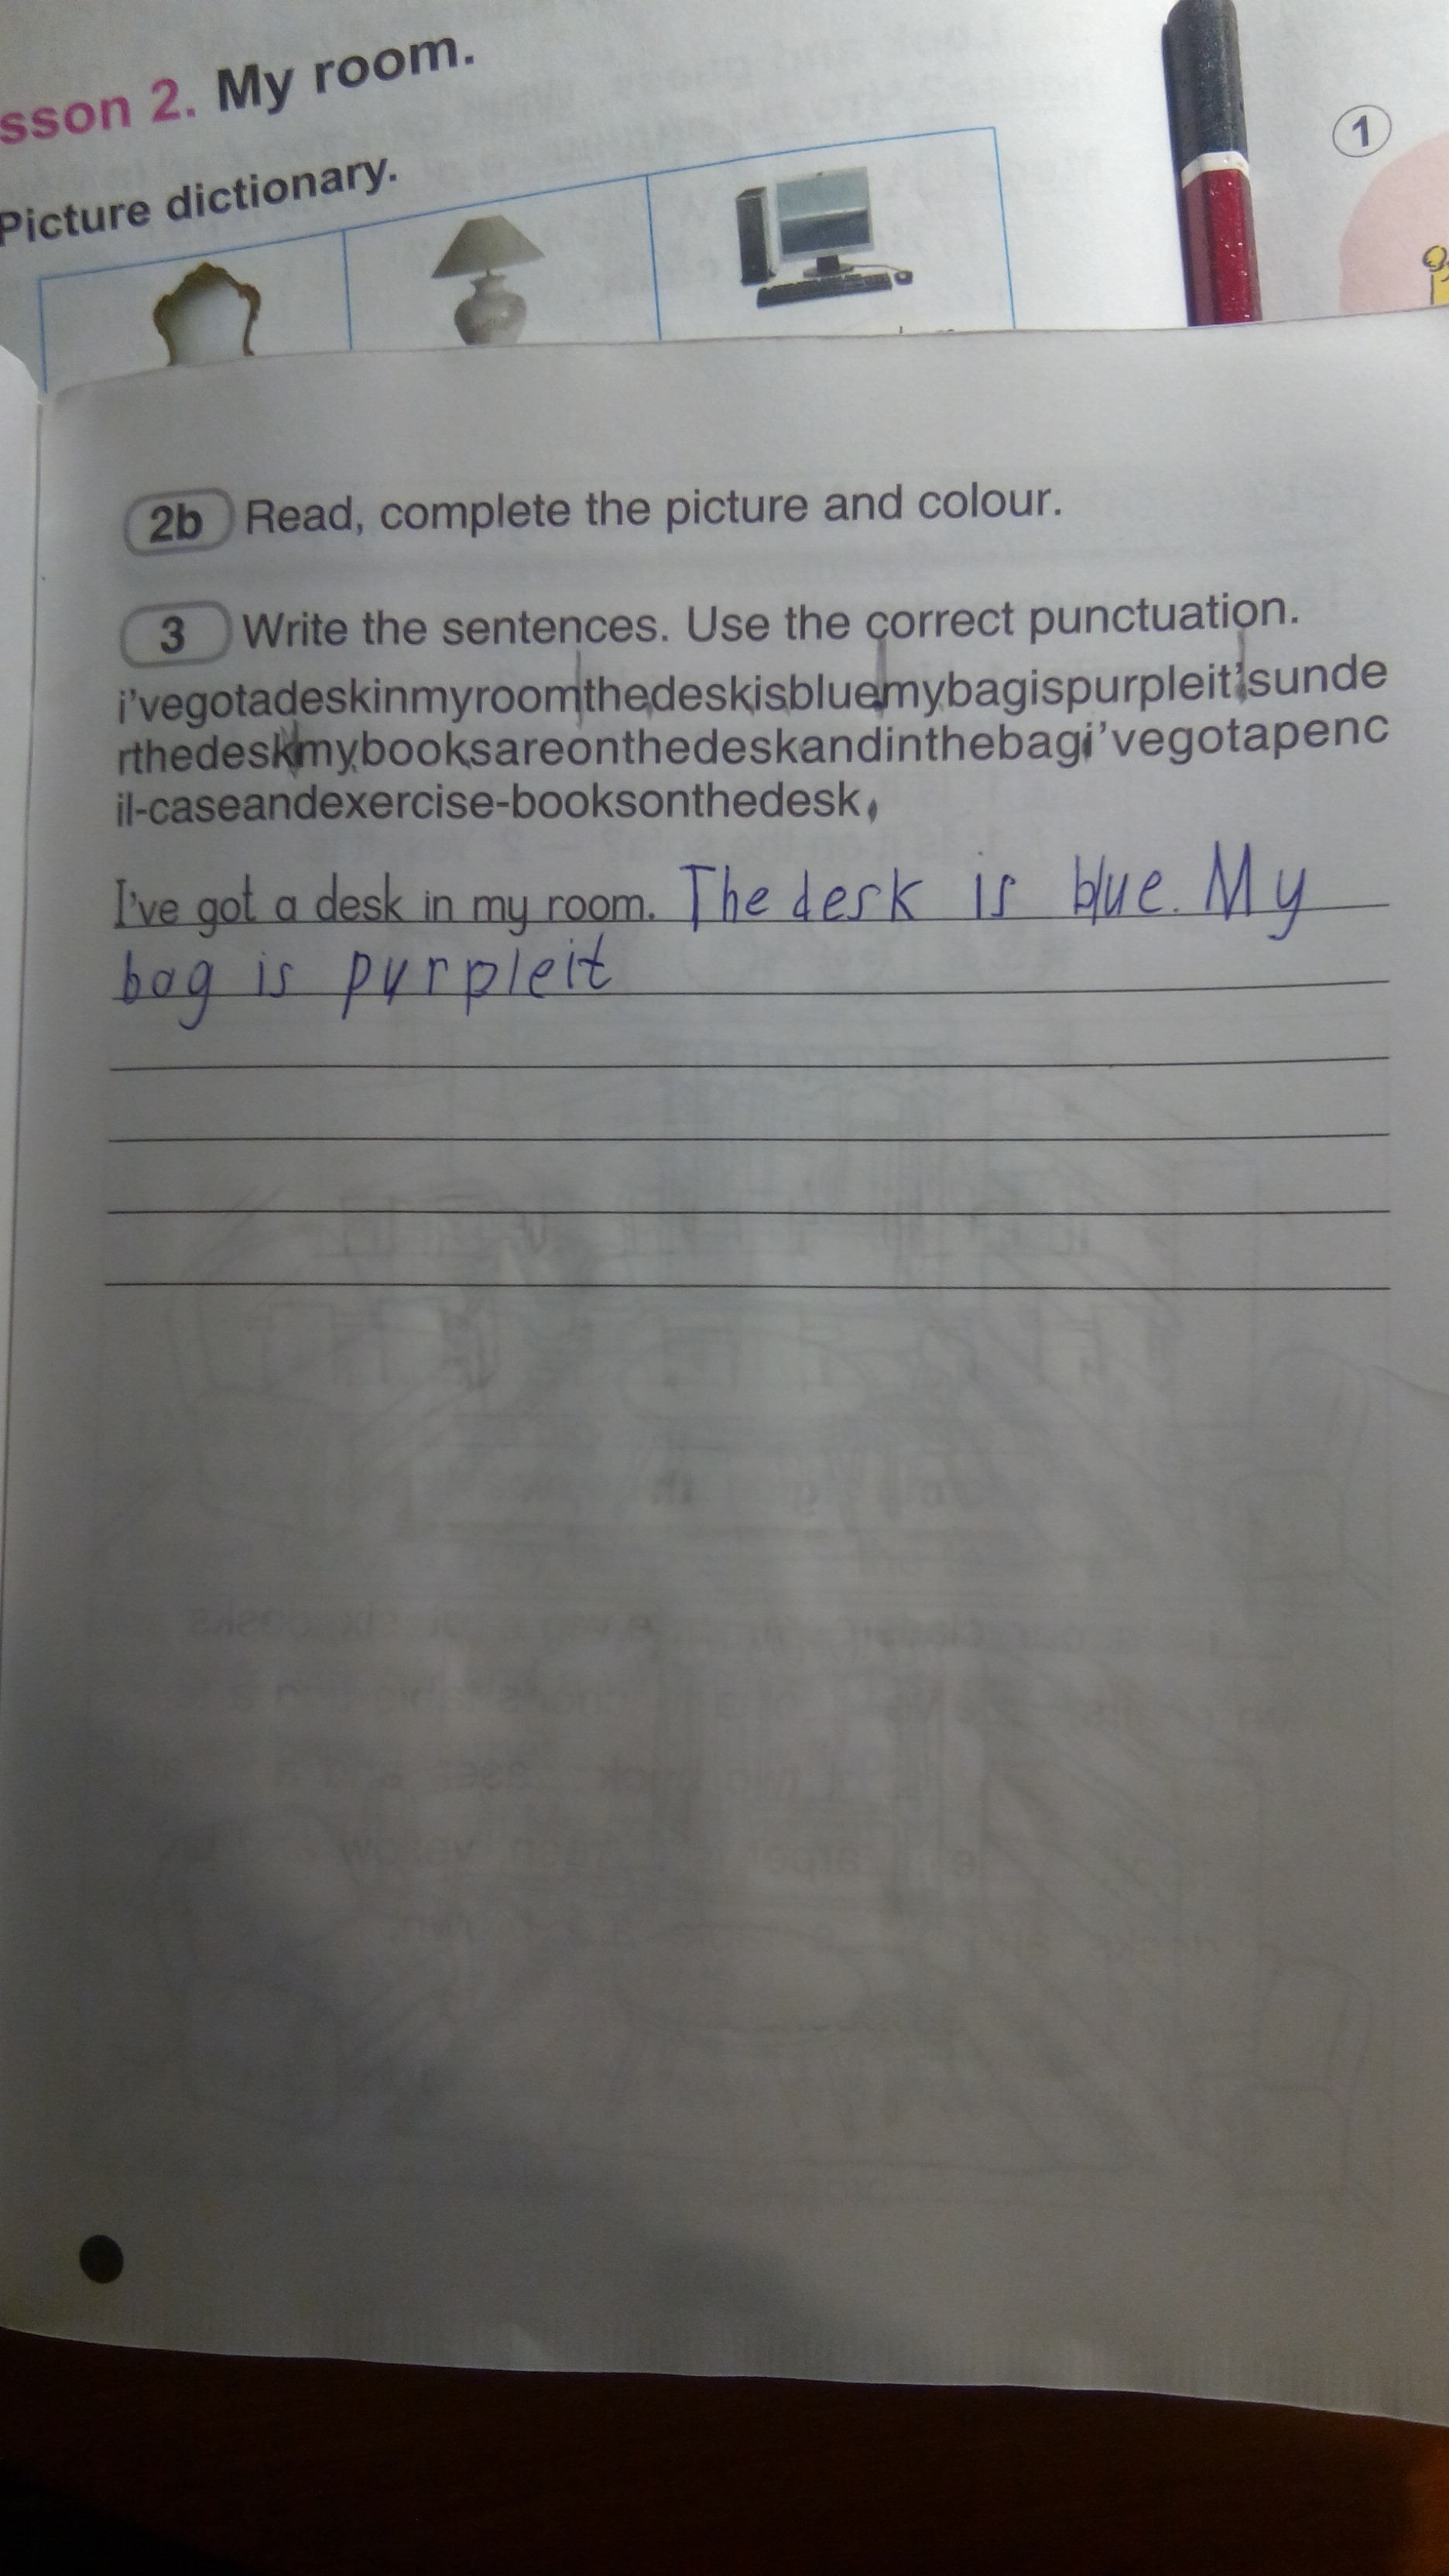 sson 2. My room.
1
Picture dictionary.
2b Read, complete the picture and colour.
3 Write the sentences. Use the correct punctuation.
i'vegotadeskinmyroomthedeskisbluemybagispurpleit'sunde
rthedeskmybooksareonthedeskandinthebagi'vegotapenc
il-caseandexercise-booksonthedesk
I've got a desk in my room. The desk is blue. My
bag is purpleit